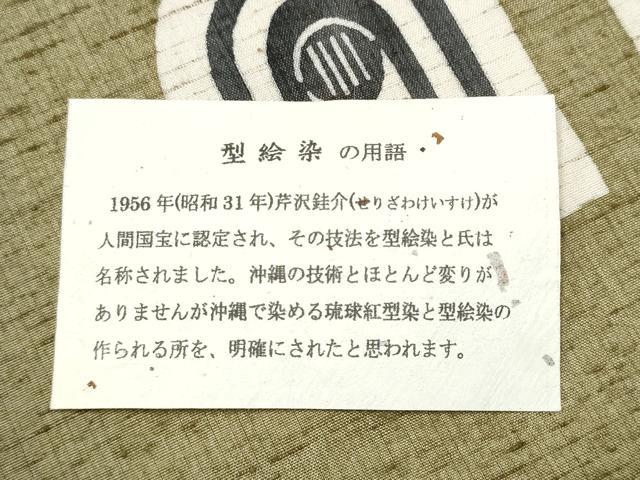 型絵染 の用語
1956年(昭和31年)芹沢銈介(せりざわけいすけ)が
人間国宝に認定され、その技法を型絵染と氏は
名称されました。沖縄の技術とほとんど変りが
ありませんが沖縄で染める琉球紅型染と型絵染の
作られる所を、明確にされたと思われます。